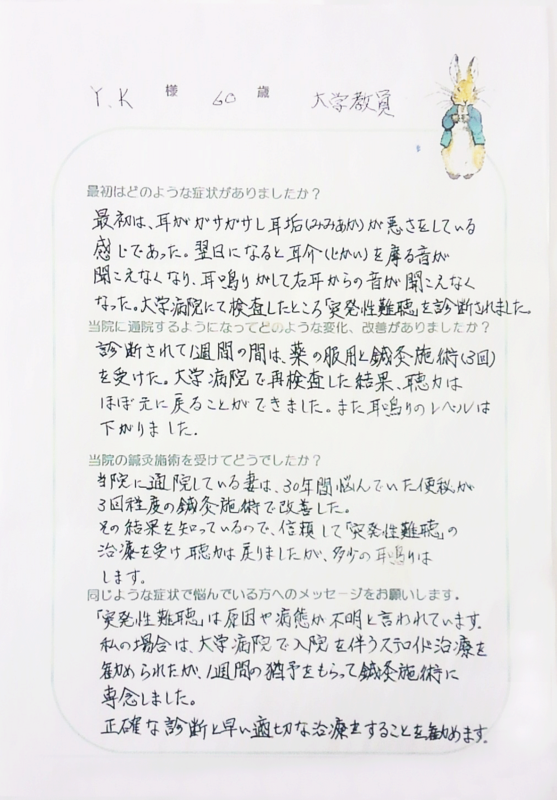 Y.K 様 60 歳 大学教員
最初はどのような症状がありましたか?
最初は、耳がガサガサし耳垢(みみあか)が悪さをしている
感じであった。翌日になると耳介(じかい)を摩る音が
聞こえなくなり、耳鳴りがして右耳からの音が聞こえなく
なった。大学病院にて検査したところ「突発性難聴」を診断されました。
当院に通院するようになってどのような変化、改善がありましたか?
診断されて1週間の間は、薬の服用と鍼灸施術(3回)
を受けた。大学病院で再検査した結果、聴力は
ほぼ元に戻ることができました。また耳鳴りのレベルは
下がりました.
当院の鍼灸施術を受けてどうでしたか?
当院に通院している妻は、30年間悩んでいた便秘が
3回程度の鍼灸施術で改善した。
その結果を知っているので、信頼して「突発性難聴」の
治療を受け聴力は戻りましたが、多少の耳鳴りは
します。
同じような症状で悩んでいる方へのメッセージをお願いします。
「突発性難聴」は原因や病態が不明と言われています.
私の場合は、大学病院で入院を伴うステロイド治療を
勧められたが、1週間の猶予をもらって鍼灸施術に
専念しました。
正確な診断と早い適切な治療をすることを勧めます。